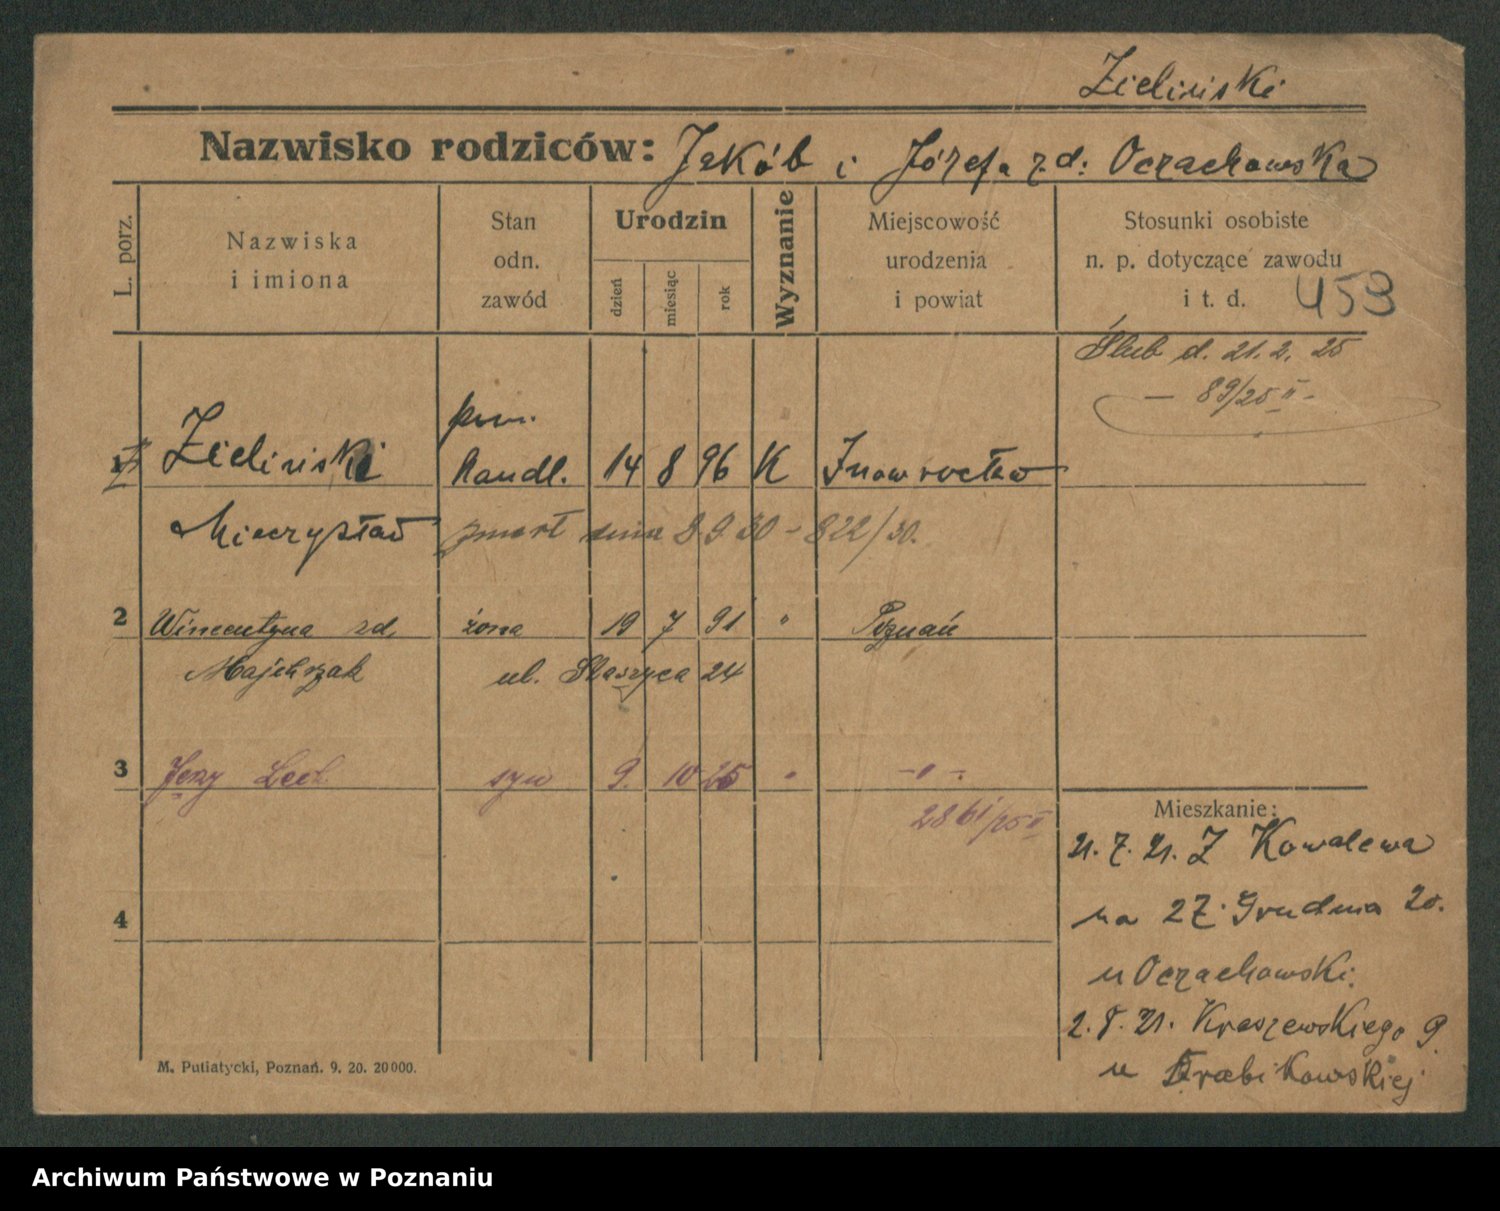 Zieliński
Nazwisko rodziców: Jakób i Józefa z d: Oczachowska
L. porz.
Nazwiska i imiona
Stan odn. zawód
Urodzin
dzień
miesiąc
rok
Wyznanie
Miejscowość urodzenia i powiat
Stosunki osobiste n. p. dotyczące zawodu i t. d.
453
Ślub d. 21. 2. 25
— 89/25 II -
Zieliński pom. handl. 14 8 96 K Inowrocław
Mieczysław zmarł dnia 8 9 30 - 822/30.
2 Wincentyna zd. żona 19 7 91 " Poznań
Majchrzak ul. Staszyca 24
3 Jerzy Lech syn 9. 10 25 " -"-
2861/25 II
Mieszkanie:
21. 7. 21. Z Kowalewa
na 27 Grudnia 20.
u Oczachowski.
4
2. 8. 21. Kraszewskiego 9
u Drabikowskiej
M. Putiatycki, Poznań. 9. 20. 20000.
Archiwum Państwowe w Poznaniu